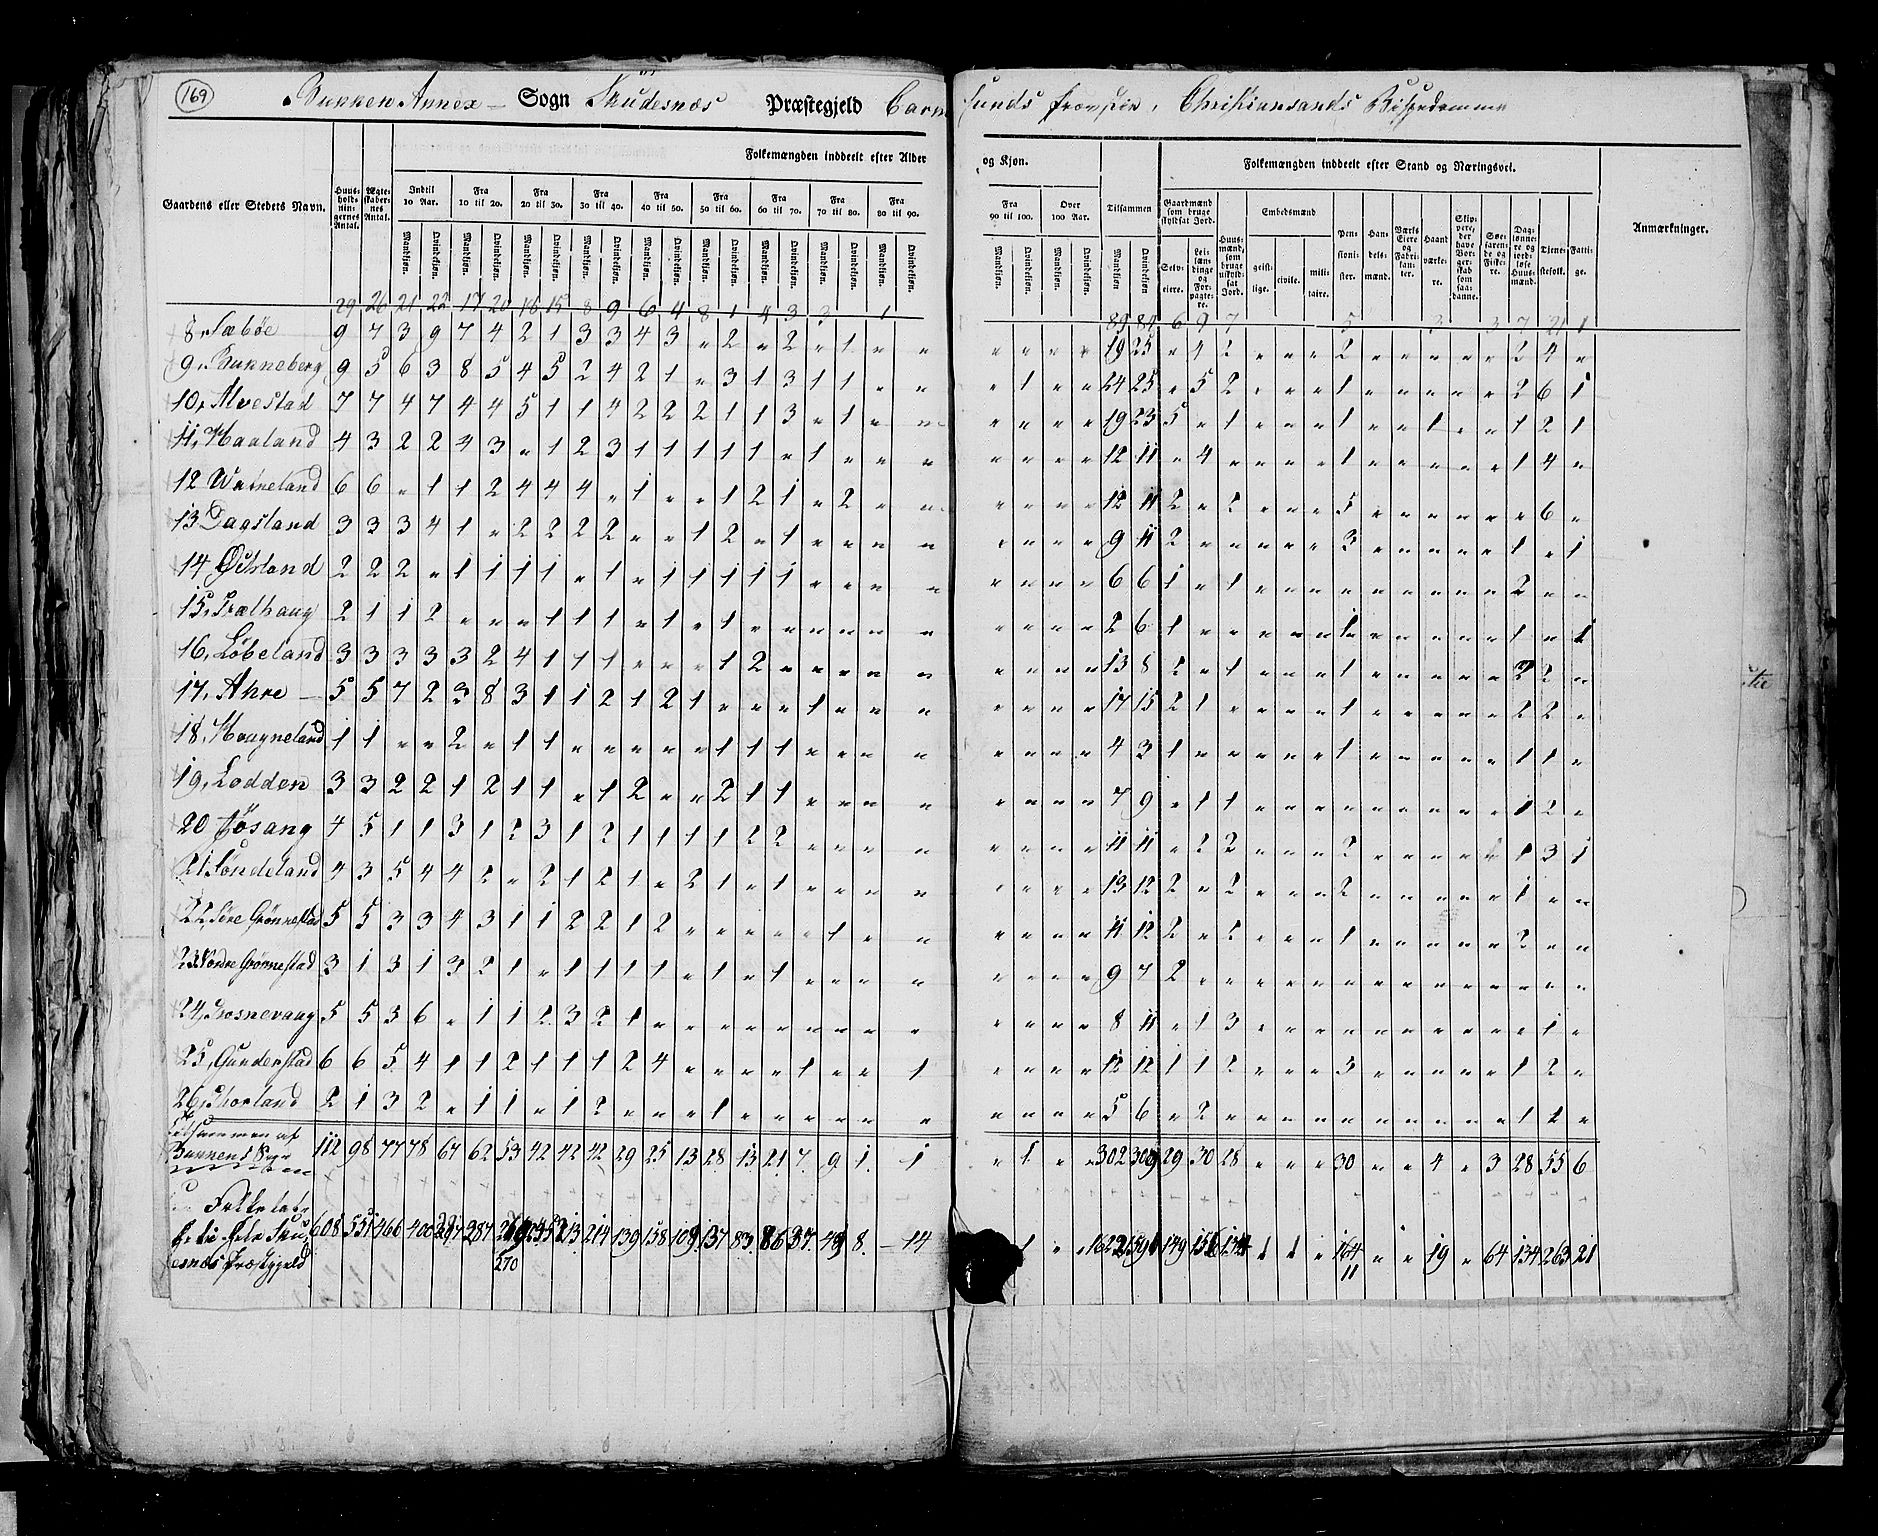 169
Bukken Annex Sogn Skudesnæs Præstegjeld Carmsunds Provstie, Christiansands Bispedømme
Gaardens eller Stedets Navn.
Huusholdningernes Antal.
Ægteskabernes Antal.
Folkemængden inddeelt efter Alder og Kjøn.
Indtil 10 Aar. Fra 10 til 20. Fra 20 til 30. Fra 30 til 40. Fra 40 til 50. Fra 50 til 60. Fra 60 til 70. Fra 70 til 80. Fra 80 til 90. Fra 90 til 100. Over 100 Aar. Tilsammen
Mandkjøn. Qvindekjøn.
Folkemængden inddeelt efter Stand og Næringsvei.
Gaardmænd som bruge skyldsat Jord. Selveiere. Leilændinge og Forpagtere.
Huusmænd, som bruge uskyldsat Jord.
Embedsmænd geistlige. civile. militaire.
Pensionister. Handelsmænd. Værks Eiere og Fabrikanter. Haandværkere. Skippere, der have Borgerskab som saadanne. Søefarende og Fiskere. Daglønnere og jordløse Huusmænd. Tjenestefolk. Fattige.
Anmærkninger.
29 26 21 22 17 20 16 15 8 9 6 4 8 1 4 3 1 89 84 6 9 7 5 3 3 7 21 1
8, Sæbøe 9 7 3 9 7 4 2 1 3 3 4 3 „ 2 „ 2 „ 1 „ „ „ „ „ „ 19 25 „ 4 2 „ „ „ 2 „ „ „ „ „ 2 4 „
9, Bukneberg 9 5 6 3 8 5 4 5 2 4 2 1 „ 3 1 3 1 1 „ „ „ 1 „ „ 24 25 „ 5 2 „ „ „ 1 „ „ „ „ „ 2 6 1
10, Alvestad 7 7 4 7 4 4 5 1 1 4 2 2 2 1 1 3 „ 1 „ „ „ „ „ „ 19 23 5 „ 1 „ „ „ 1 „ „ 1 „ „ 1 2 1
11, Haaland 4 3 2 2 4 3 „ 1 2 3 1 1 1 1 1 „ 1 „ „ „ „ „ „ „ 12 11 „ 4 „ „ „ „ 1 „ „ „ „ „ 1 4 „
12 Vatneland 6 6 „ 1 1 2 4 4 4 „ 1 „ „ 1 2 1 „ 2 „ „ „ „ „ „ 12 11 2 „ 2 „ „ „ 5 „ „ „ „ „ „ 6 „
13 Dagsland 3 3 3 4 1 „ 2 2 2 2 „ „ 1 2 „ 1 „ „ „ „ „ „ „ „ 9 11 2 „ „ „ „ „ 3 „ „ „ „ „ 1 „ 1
14 Østsland 2 2 2 „ 1 1 1 1 „ 1 „ 1 1 1 1 1 „ „ „ „ „ „ „ „ 6 6 1 „ 1 „ „ „ „ „ „ „ „ „ 2 „ „
15, Trælhaug 2 1 1 2 „ „ „ 1 1 1 „ 1 „ 1 „ „ „ „ „ „ „ „ „ „ 2 6 1 „ „ „ „ „ 1 „ „ „ „ „ 1 „ 1
16, Løbeland 3 3 3 3 3 2 4 1 1 1 „ „ „ 1 2 „ „ „ „ „ „ „ „ „ 13 8 2 „ 1 „ „ „ 1 „ „ „ „ „ 2 2 „
17, Ahre 5 5 7 2 3 8 3 1 1 2 1 2 1 „ „ „ 1 „ „ „ „ „ „ „ 17 15 2 1 „ „ „ „ 1 „ „ „ „ „ 2 2 „
18, Kragneland 1 1 „ „ 2 „ 1 1 „ „ „ „ „ 1 1 1 „ „ „ „ „ „ „ „ 4 3 1 „ „ „ „ „ 1 „ „ „ „ „ 1 1 „
19, Lodden 3 3 2 2 1 2 1 1 „ 1 2 „ „ 2 1 1 „ „ „ „ „ „ „ „ 7 9 „ 1 1 „ „ „ „ „ „ „ „ „ 1 2 „
20 Jøsang 4 5 1 1 3 1 2 3 1 2 1 1 1 1 2 2 „ „ „ „ „ „ „ „ 11 11 „ 2 2 „ „ „ 2 „ „ „ „ „ 1 3 1
21 Søndeland 4 3 5 4 4 2 „ 2 1 2 1 „ 2 1 „ 1 „ „ „ „ „ „ „ „ 13 12 2 „ 2 „ „ „ 2 „ „ „ „ „ 1 „ „
22, Søre Grønnestad 5 5 3 3 4 3 1 1 2 2 1 2 „ „ „ „ „ 1 „ „ „ „ „ „ 11 12 2 „ 2 „ „ „ 1 „ „ „ „ „ 2 „ „
23 Nordre Grønnestad 3 1 3 1 3 2 1 „ 1 1 1 1 „ 1 „ 1 „ „ „ „ „ „ „ „ 9 7 2 „ „ „ „ „ „ „ „ „ „ „ „ „ „
24, Frosnevaag 5 5 3 6 „ 1 1 2 3 2 1 „ „ „ „ „ „ „ „ „ „ „ „ „ 8 11 „ 1 3 „ „ „ „ „ „ „ „ „ „ 1 „
25, Gunderstad 6 6 5 4 1 1 2 1 1 1 2 4 „ „ „ „ 1 „ „ 1 „ „ „ „ 12 12 1 1 2 „ „ „ 3 „ „ „ „ „ 1 2 „
26, Thorland 2 1 3 2 „ 1 1 „ 1 2 „ „ „ 1 „ „ „ „ „ „ „ „ „ „ 5 6 „ 2 „ „ „ „ „ „ „ „ „ „ 1 1 „
Totsummen af Bukkens Sogn 112 98 77 78 67 62 53 42 42 42 29 25 13 28 13 21 7. 9 1. 1 „ 1. „ „ 302 309 29 30 28 „ „ „ 30 „ „ 4 „ 3 28 55 6
Folketal Hele Skudesnæs Præstegjeld 608 551 466 400 387 213 214 139 158 109 137 83. 86 37. 8. 14 1 „ „ 1622 149 1 1 „ 164 „ „ 19 „ 64 134 263 21
270
11